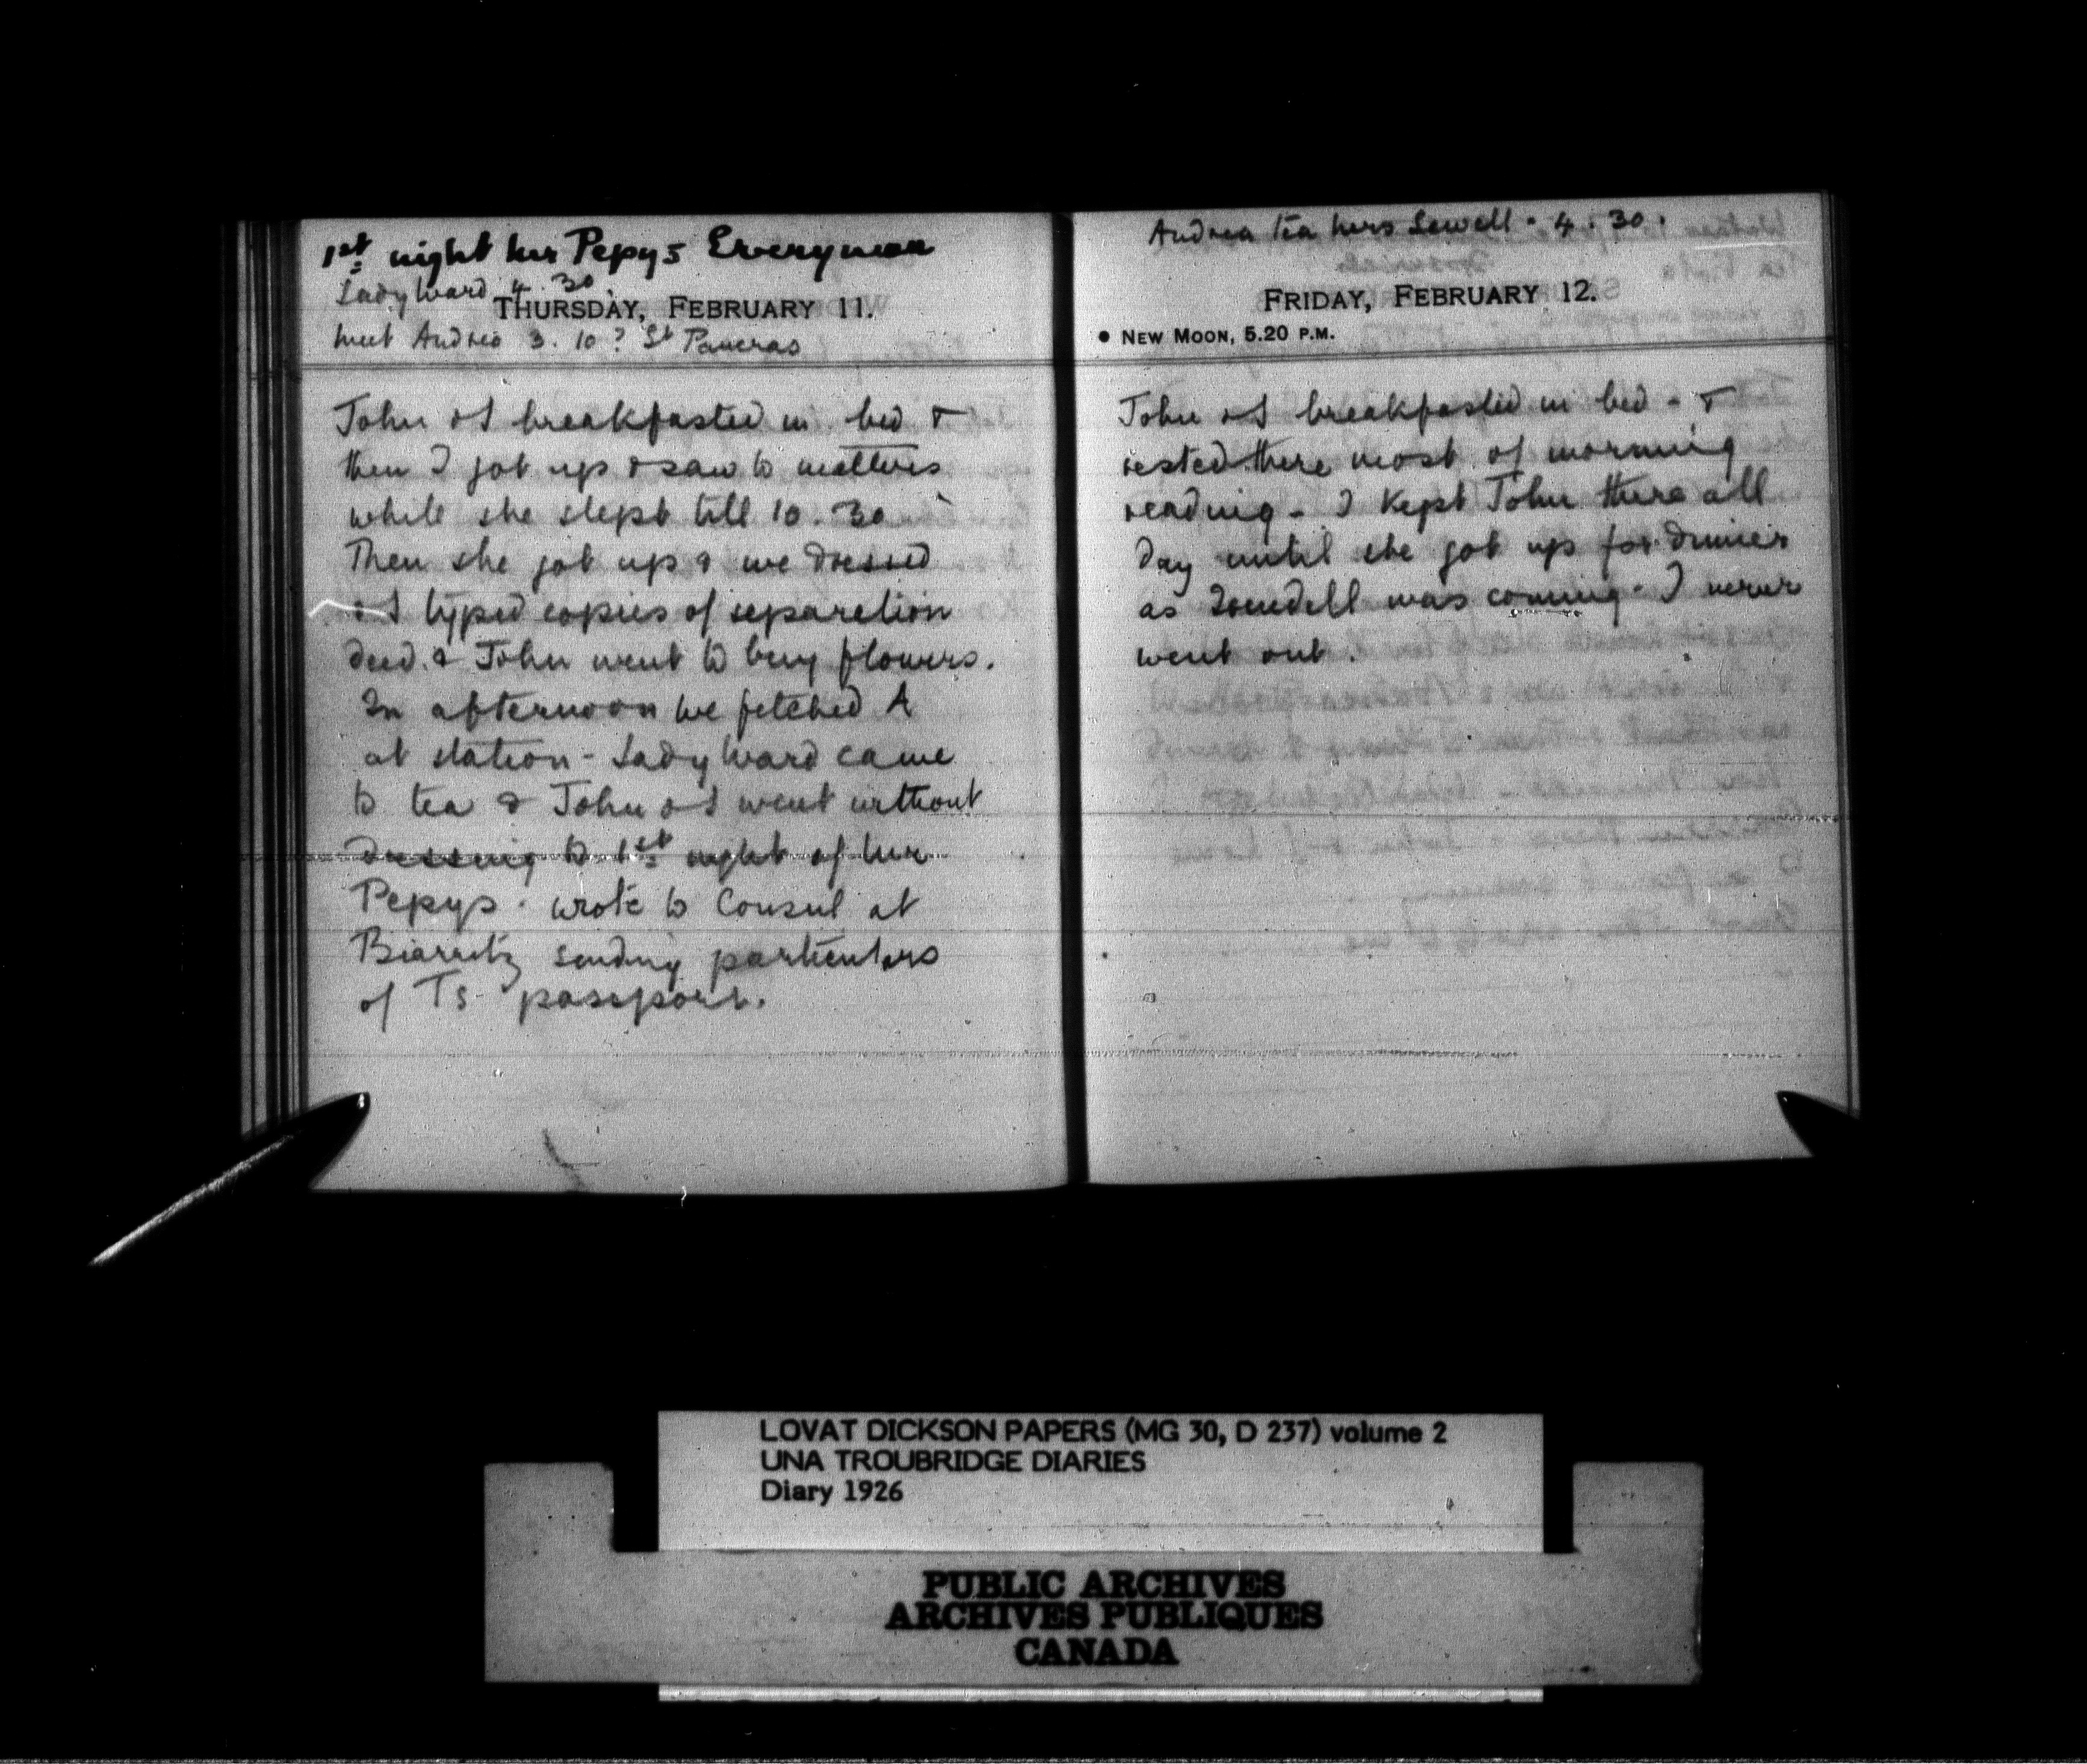 1st night Mr Pepys Everyman
Lady Ward 4.30.
THURSDAY, FEBRUARY 11.
meet Andrea 3.10? St Pancras
John & I breakfasted in bed &
then I got up & saw to matters
while she slept till 10.30
Then she got up & we dressed
& I typed copies of separation
deed. & John went to buy flowers.
In afternoon we fetched A
at station - Lady Ward came
to tea & John & I went without
dressing to 1st night of Mr
Pepys. wrote to Consul at
Biarritz sending particulars
of Ts passport.
Andrea tea Mrs Sewell - 4.30.
FRIDAY, FEBRUARY 12.
● NEW MOON, 5.20 P.M.
John & I breakfasted in bed - &
rested there most of morning
reading - I kept John there all
day until she got up for dinner
as was coming - I never
went out.
LOVAT DICKSON PAPERS (MG 30, D 237) volume 2
UNA TROUBRIDGE DIARIES
Diary 1926
PUBLIC ARCHIVES
ARCHIVES PUBLIQUES
CANADA